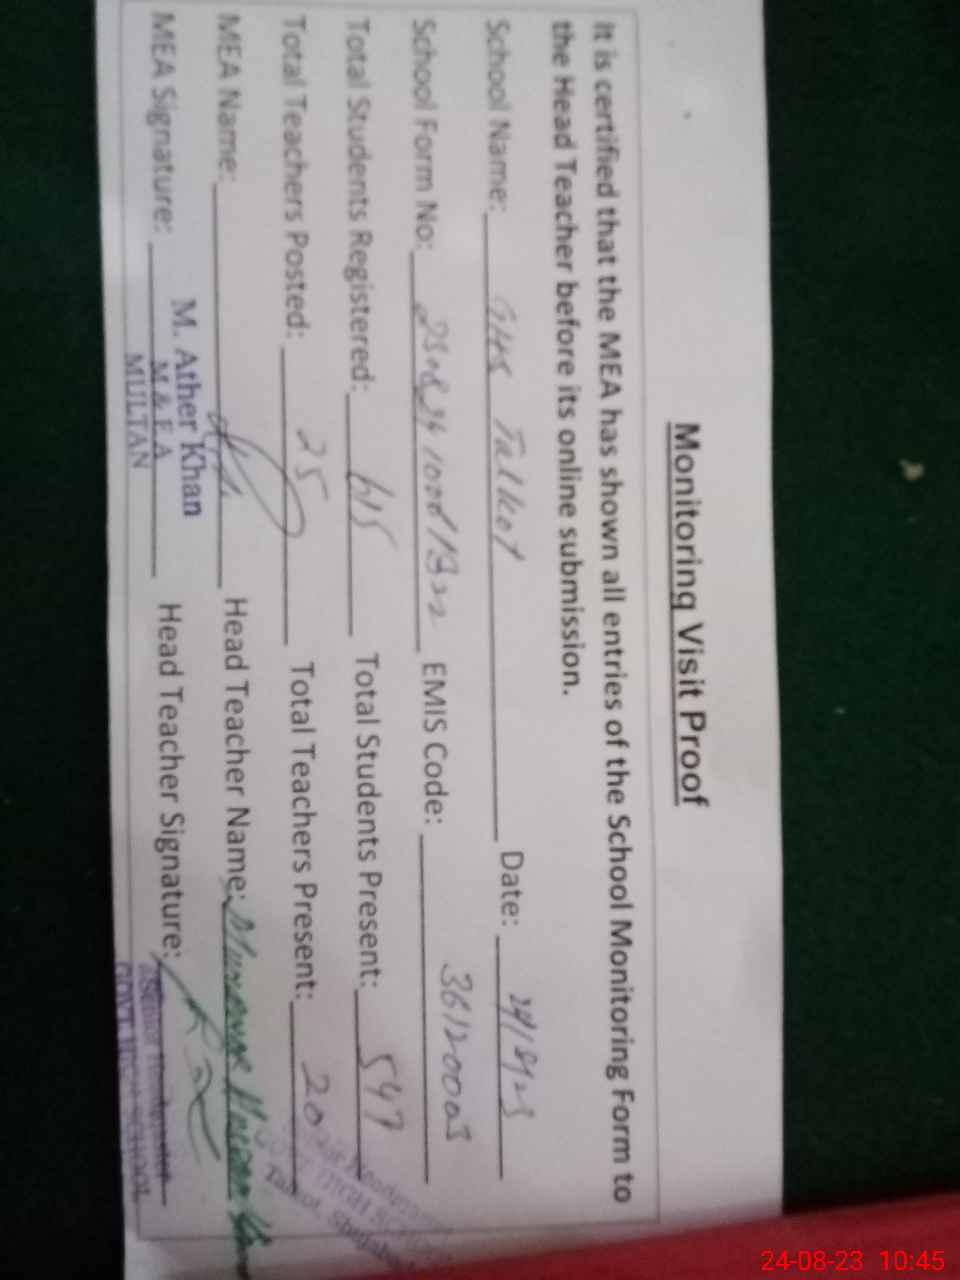 Monitoring Visit Proof
It is certified that the MEA has shown all entries of the School Monitoring Form to
the Head Teacher before its online submission.
School Name: GHS Talkot Date: 24/8/23
School Form No: EMIS Code: 36120003
Total Students Registered: 615 Total Students Present: 547
Total Teachers Posted: 25 Total Teachers Present: 20
MEA Name: Head Teacher Name:
MEA Signature: Head Teacher Signature:
M. Ather Khan
M & E A
MULTAN
HIGH SCHOOL
24-08-23 10:45